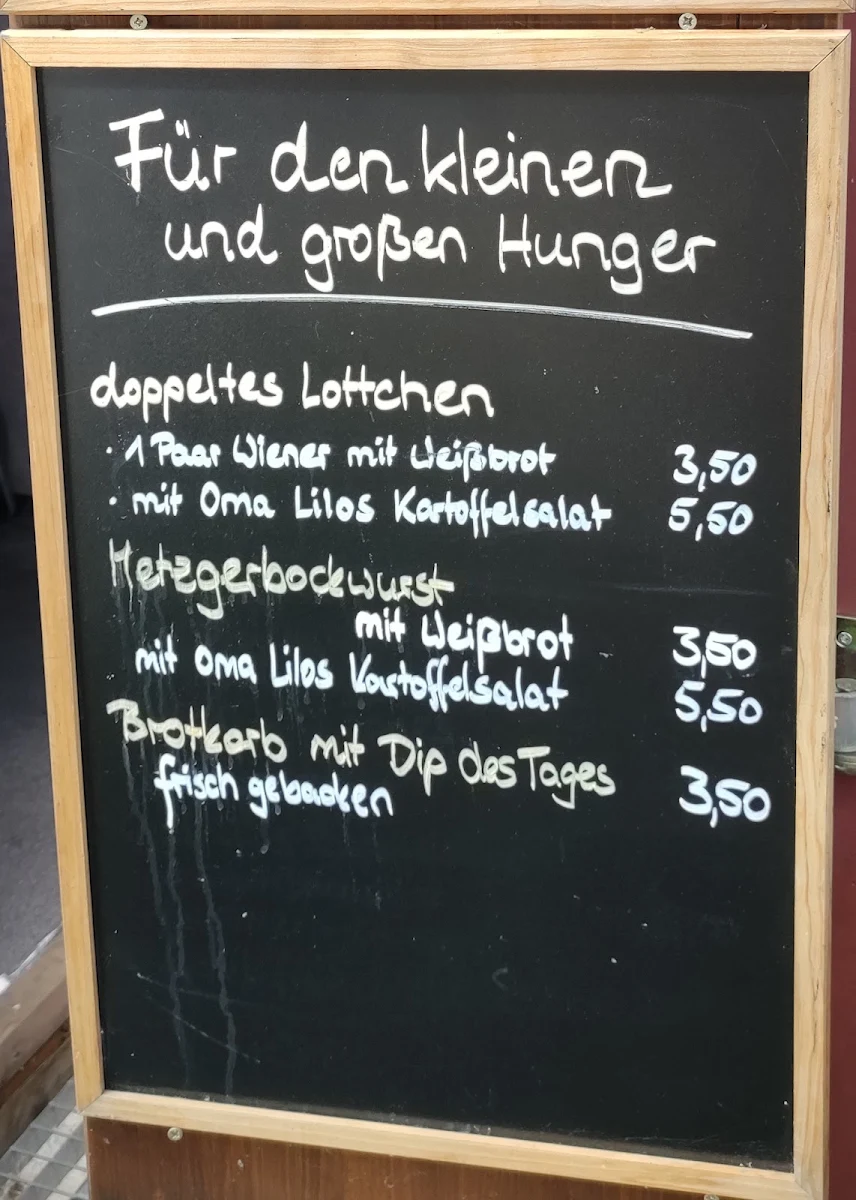 Für den kleinen
und großen Hunger
doppeltes Lottchen
· 1 Paar Wiener mit Weißbrot 3,50
· mit Oma Lilos Kartoffelsalat 5,50
Metzgerbockwurst
mit Weißbrot 3,50
mit Oma Lilos Kartoffelsalat 5,50
Brotkorb mit Dip des Tages
frisch gebacken 3,50